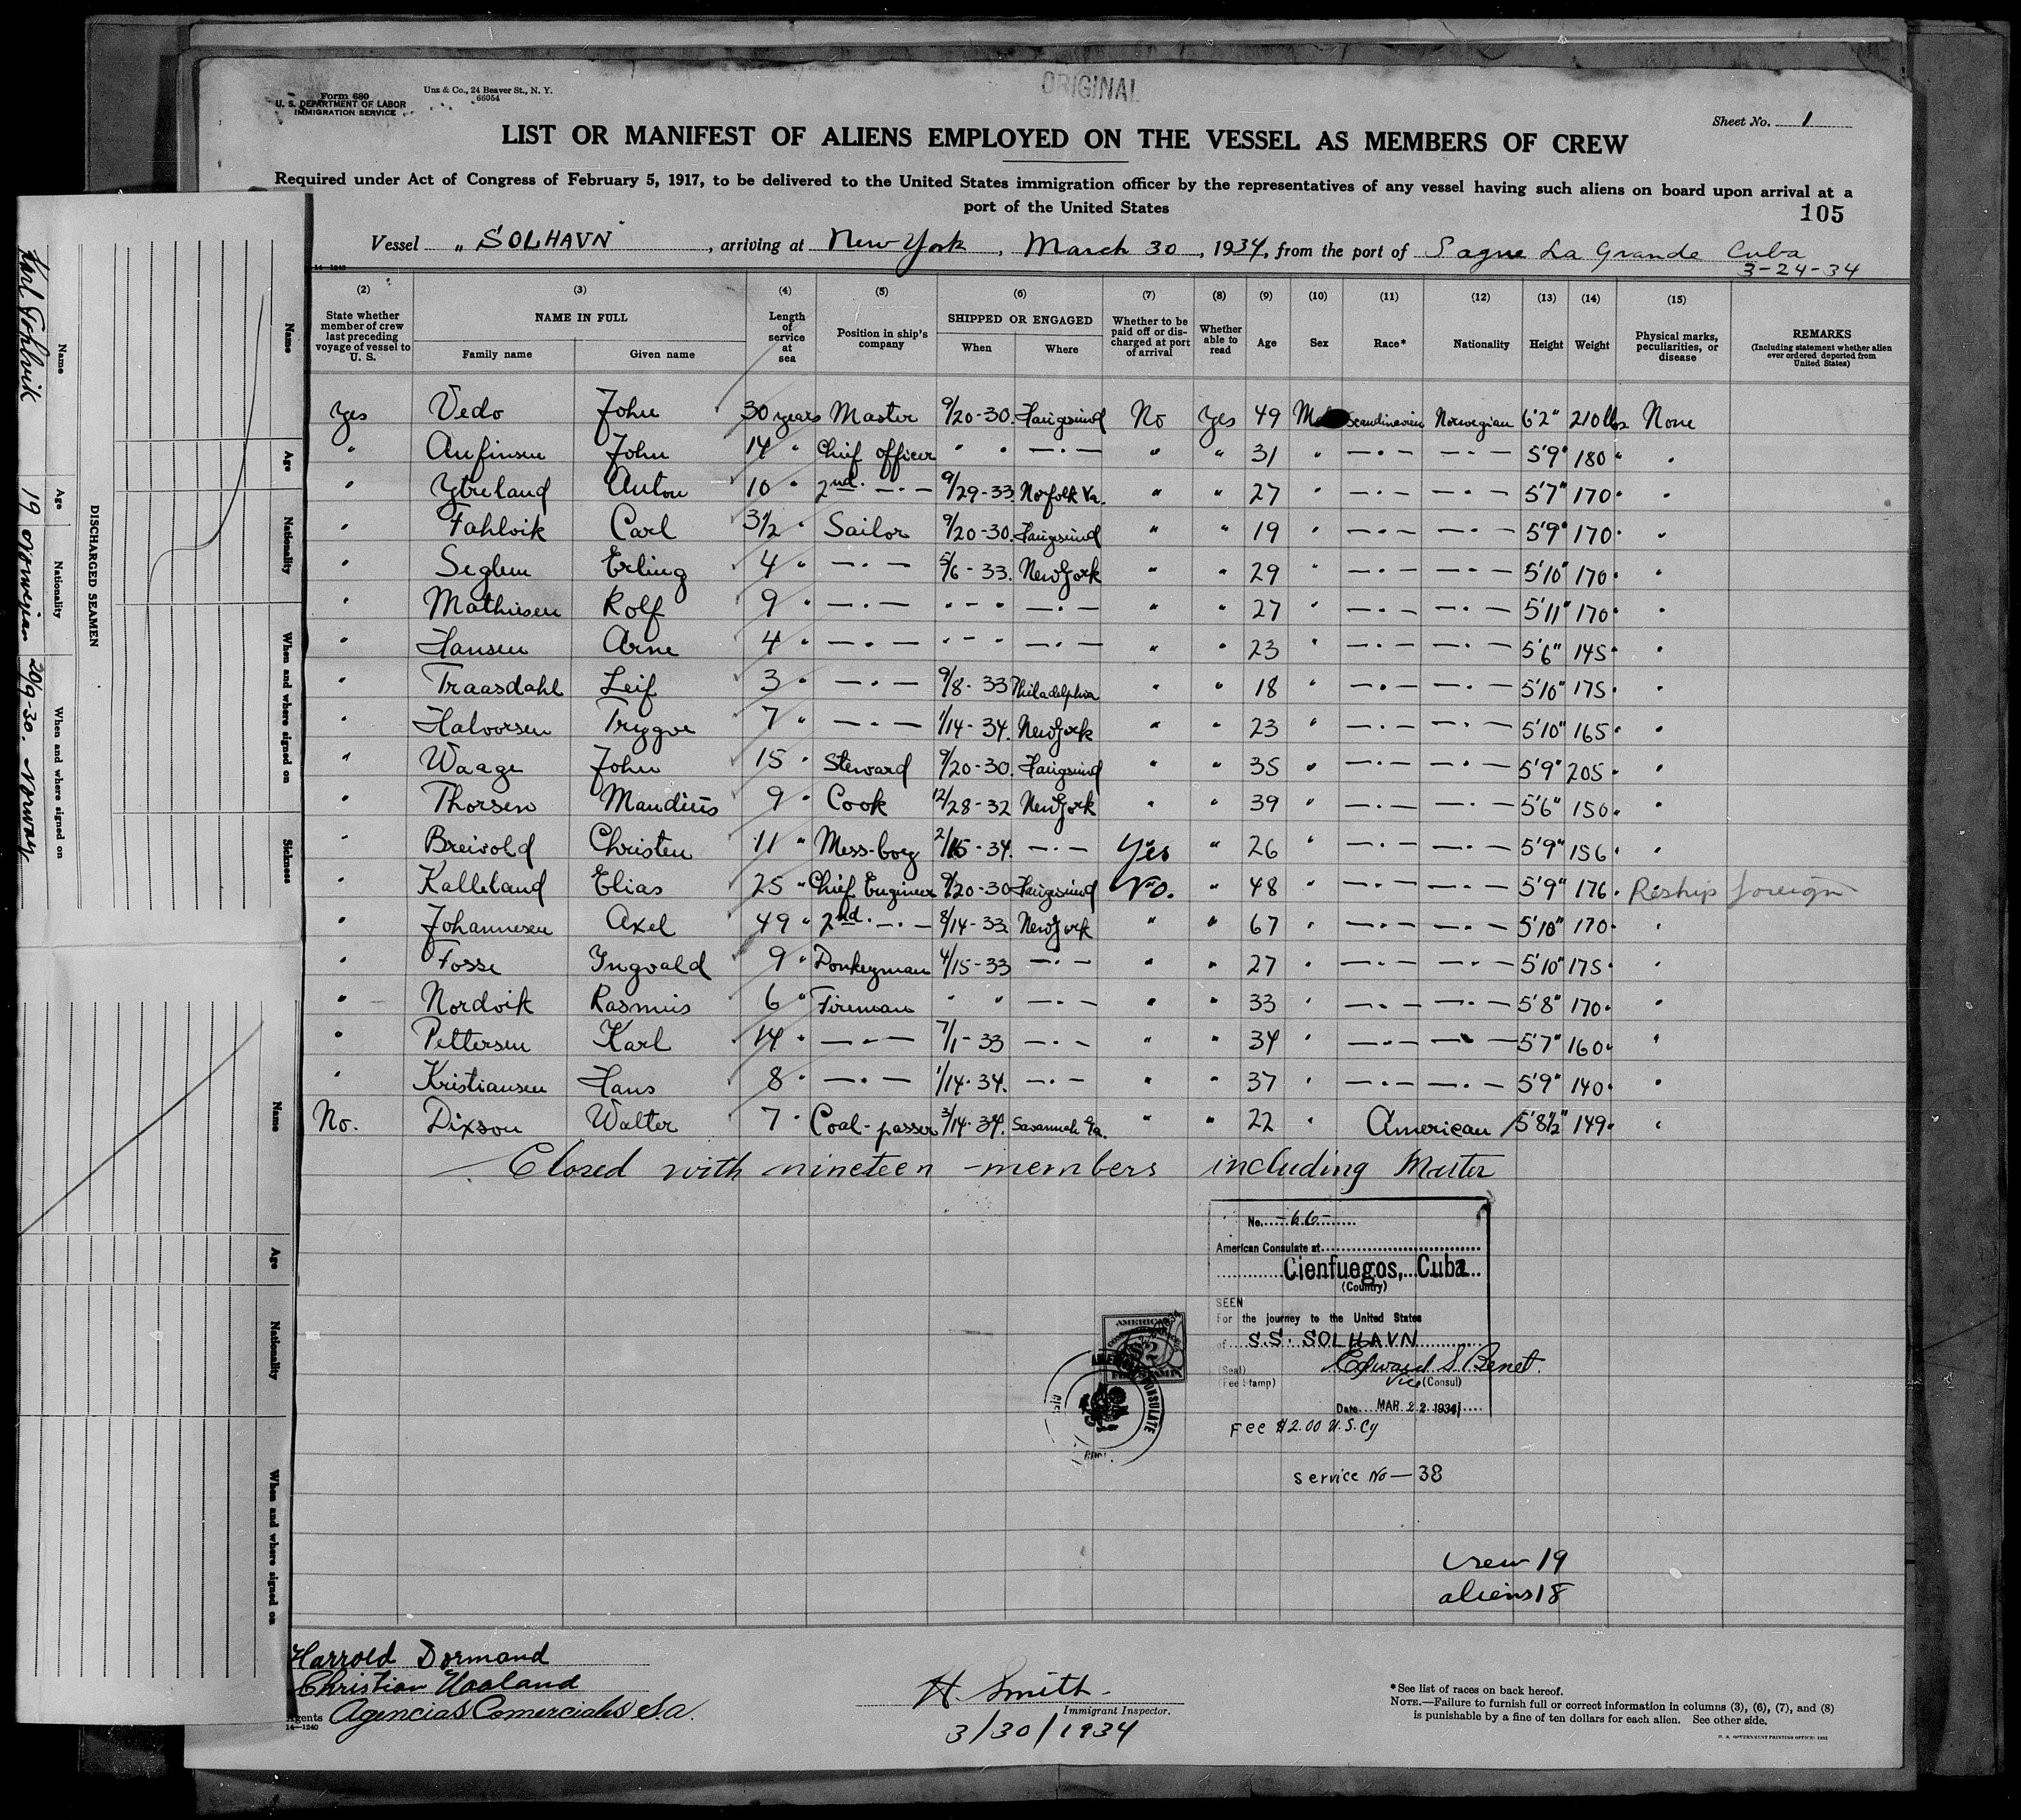 ORIGINAL
Form 680
U. S. DEPARTMENT OF LABOR
IMMIGRATION SERVICE
Unz & Co., 24 Beaver St., N. Y.
66054
Sheet No. 1
LIST OR MANIFEST OF ALIENS EMPLOYED ON THE VESSEL AS MEMBERS OF CREW
Required under Act of Congress of February 5, 1917, to be delivered to the United States immigration officer by the representatives of any vessel having such aliens on board upon arrival at a
port of the United States
105
Vessel "SOLHAVN", arriving at New York, March 30, 1934, from the port of Sague La Grande Cuba
3-24-34
14-1240
(2) (3) (4) (5) (6) (7) (8) (9) (10) (11) (12) (13) (14) (15)
State whether member of crew last preceding voyage of vessel to U. S. | NAME IN FULL Family name Given name | Length of service at sea | Position in ship's company | SHIPPED OR ENGAGED When Where | Whether to be paid off or discharged at port of arrival | Whether able to read | Age | Sex | Race* | Nationality | Height | Weight | Physical marks, peculiarities, or disease | REMARKS (Including statement whether alien ever ordered deported from United States)
Yes Vedo John 30 years Master 9/20-30. Haugesund No Yes 49 Scandinavien Norwegian 6'2" 210 lbs None
" Anfinsen John 14 " Chief officer " " —·— " " 31 " —·— —·— 5'9" 180 " "
" Ytreland Anton 10 " 2nd —·— 9/29-33. Norfolk Va. " " 27 " —·— —·— 5'7" 170 " "
" Fahlvik Carl 3½ " Sailor 9/20-30. Haugesund " " 19 " —·— —·— 5'9" 170 " "
" Seglem Erling 4 " —·— 5/6-33. New York " " 29 " —·— —·— 5'10" 170 " "
" Mathiesen Rolf 9 " —·— "-" —·— " " 27 " —·— —·— 5'11" 170 " "
" Hansen Arne 4 " —·— "-" —·— " " 23 " —·— —·— 5'6" 145 " "
" Traasdahl Leif 3 " —·— 9/8-33 Philadelphia " " 18 " —·— —·— 5'10" 175 " "
" Halvorsen Trygve 7 " —·— 1/14-34. New York " " 23 " —·— —·— 5'10" 165 " "
" Waage John 15 " Steward 9/20-30. Haugesund " " 35 " —·— —·— 5'9" 205 " "
" Thorsen Maudius 9 " Cook 12/28-32 New York " " 39 " —·— —·— 5'6" 150 " "
" Breivold Christen 11 " Mess-boy 2/15-34. —·— Yes " 26 " —·— —·— 5'9" 156 " "
" Kalleland Elias 25 " Chief Engineer 9/20-30 Haugesund No. " 48 " —·— —·— 5'9" 176 " Reship foreign
" Johannesen Axel 49 " 2nd —·— 8/14-33 New York " " 67 " —·— —·— 5'10" 170 " "
" Fosse Ingvald 9 " Donkeyman 4/15-33 —·— " " 27 " —·— —·— 5'10" 175 " "
" Nordvik Rasmus 6 " Fireman " " —·— " " 33 " —·— —·— 5'8" 170 " "
" Pettersen Karl 14 " —·— 7/1-33 —·— " " 34 " —·— —·— 5'7" 160 " "
" Kristiansen Hans 8 " —·— 1/14-34. —·— " " 37 " —·— —·— 5'9" 140 " "
No. Dixson Walter 7 " Coal-passer 3/14-34. Savannah Ga. " " 22 " American 5'8½" 149 " "
Closed with nineteen members including Master
No. -66-
American Consulate at
Cienfuegos, Cuba
(Country)
SEEN
For the journey to the United States
of S.S. SOLHAVN
(Seal) Edward S. Benet
(Fee Stamp) Vice (Consul)
Date MAR 22 1934
Fee $2.00 U.S.Cy
Service No—38
AMERICAN
$2
FEE STAMP
CONSULATE
crew 19
aliens 18
Harrold Dormand
Christian Haaland
Agents Agencias Comerciales S.a.
14-1240
H Smith
Immigrant Inspector.
3/30/1934
*See list of races on back hereof.
NOTE.—Failure to furnish full or correct information in columns (3), (6), (7), and (8)
is punishable by a fine of ten dollars for each alien. See other side.
U. S. GOVERNMENT PRINTING OFFICE: 1932
DISCHARGED SEAMEN
Name Age Nationality When and where signed on
Karl Fohlvik 19 Norwegian 20/9-30. Norway
Name Age Nationality When and where signed on Sickness
Name Age Nationality When and where signed on